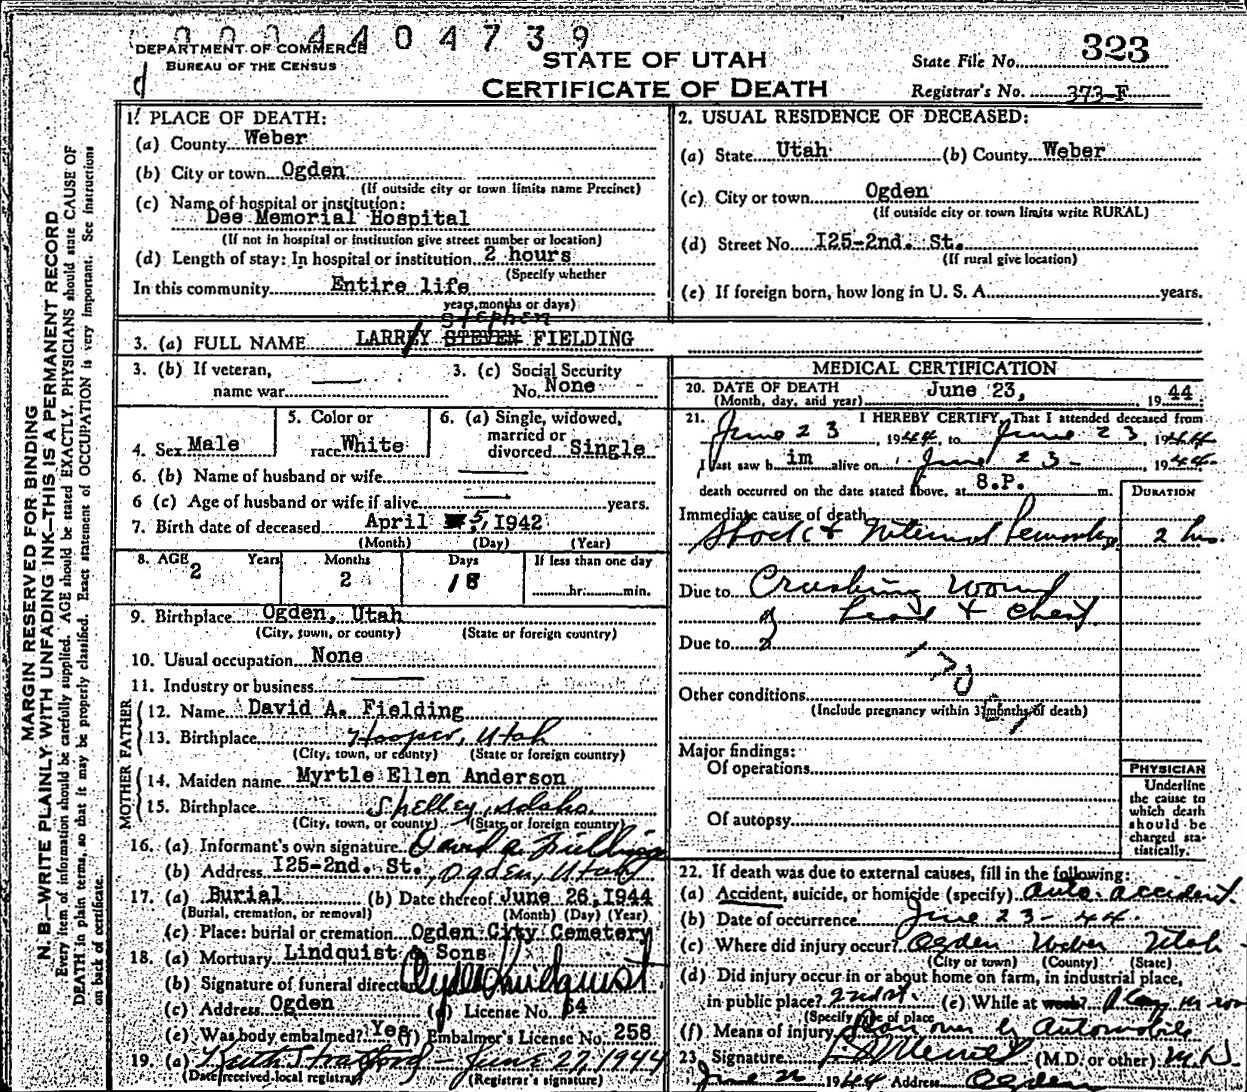 0004404739
DEPARTMENT OF COMMERCE
BUREAU OF THE CENSUS
d
STATE OF UTAH
CERTIFICATE OF DEATH
State File No. 323
Registrar's No. 373-F
MARGIN RESERVED FOR BINDING
N. B.—WRITE PLAINLY WITH UNFADING INK—THIS IS A PERMANENT RECORD
Every item of information should be carefully supplied. AGE should be stated EXACTLY. PHYSICIANS should state CAUSE OF
DEATH in plain terms, so that it may be properly classified. Exact statement of OCCUPATION is very important. See instructions
on back of certificate.
1. PLACE OF DEATH:
(a) County Weber
(b) City or town Ogden
(If outside city or town limits name Precinct)
(c) Name of hospital or institution:
Dee Memorial Hospital
(If not in hospital or institution give street number or location)
(d) Length of stay: In hospital or institution 2 hours
(Specify whether
In this community Entire life
years, months or days)
2. USUAL RESIDENCE OF DECEASED:
(a) State Utah (b) County Weber
(c) City or town Ogden
(If outside city or town limits write RURAL)
(d) Street No. I25-2nd. St.
(If rural give location)
(e) If foreign born, how long in U. S. A. years.
Stephen
3. (a) FULL NAME LARREY STEVEN FIELDING
3. (b) If veteran, name war
3. (c) Social Security No. None
4. Sex Male
5. Color or race White
6. (a) Single, widowed, married or divorced Single
6. (b) Name of husband or wife
6 (c) Age of husband or wife if alive years.
7. Birth date of deceased April 5, I942
(Month) (Day) (Year)
8. AGE Years Months Days If less than one day
2 2 18 hr. min.
9. Birthplace Ogden, Utah
(City, town, or county) (State or foreign country)
10. Usual occupation None
11. Industry or business
FATHER
12. Name David A. Fielding
13. Birthplace Hooper, Utah
(City, town, or county) (State or foreign country)
MOTHER
14. Maiden name Myrtle Ellen Anderson
15. Birthplace Shelley, Idaho.
(City, town, or county) (State or foreign country)
16. (a) Informant's own signature David A. Fielding
(b) Address I25-2nd. St., Ogden, Utah
17. (a) Burial (b) Date thereof June 26, I944
(Burial, cremation, or removal) (Month) (Day) (Year)
(c) Place: burial or cremation Ogden City Cemetery
18. (a) Mortuary Lindquist & Sons
(b) Signature of funeral director Clyde Lindquist
(c) Address Ogden (d) License No. 64
(e) Was body embalmed? Yes (f) Embalmer's License No. 258
19. (a) June 27, 1944
(Date received local registrar) (Registrar's signature)
MEDICAL CERTIFICATION
20. DATE OF DEATH June 23, 1944
(Month, day, and year)
21. I HEREBY CERTIFY, That I attended deceased from
June 23, 1944, to June 23, 1944
I last saw him alive on June 23-, 1944.
death occurred on the date stated above, at 8.P. m.
DURATION
Immediate cause of death
Shock & Internal 2 hrs.
Due to Crushing Wound
of head & chest
Due to
170
Other conditions
(Include pregnancy within 3 months of death)
Major findings:
Of operations
Of autopsy
PHYSICIAN
Underline
the cause to
which death
should be
charged sta-
tistically.
22. If death was due to external causes, fill in the following:
(a) Accident, suicide, or homicide (specify) auto. accident.
(b) Date of occurrence June 23-44.
(c) Where did injury occur? Ogden Weber Utah
(City or town) (County) (State)
(d) Did injury occur in or about home on farm, in industrial place,
in public place? 2nd st. (e) While at work? Play in
(Specify type of place)
(f) Means of injury Ran over by Automobile
23. Signature (M.D. or other) M.D.
June 1944 Address Ogden